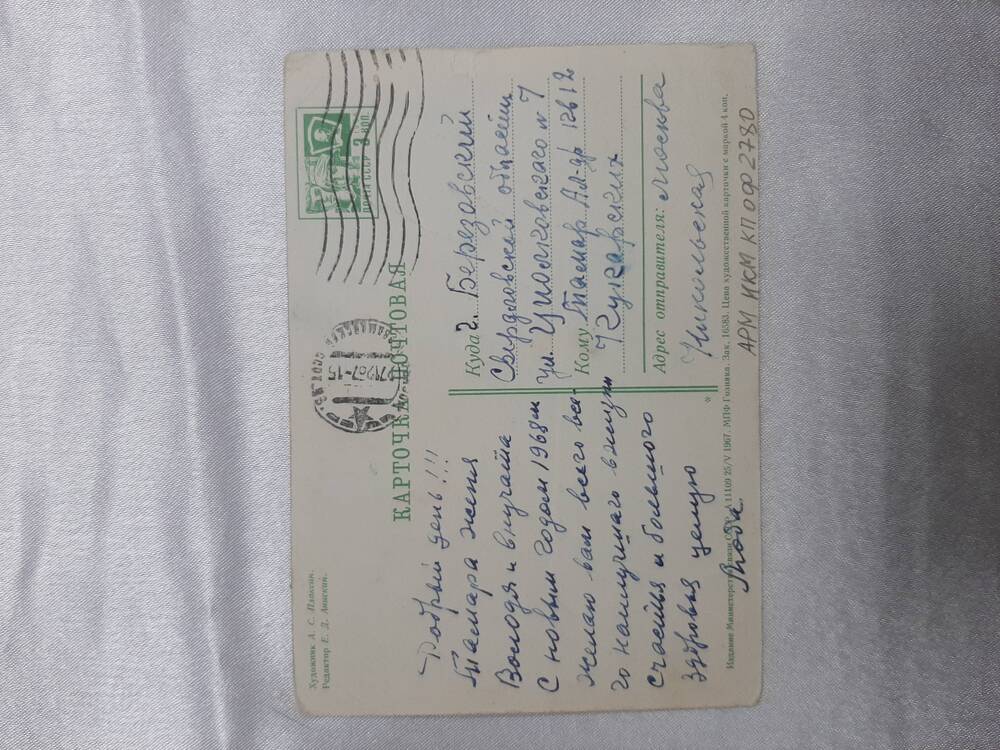 Художник А. С. Плаксин.
Редактор Е. Д. Анискин.
ПОЧТА СССР 3 КОП.
КАРТОЧКА ПОЧТОВАЯ
Добрый день!!!
Тамара женя
Володя и внучата
С новым годом 1968 г
желаю вам всего все-
го наилучшаго в жизни
счастья и большого
здоровья целую
Люба
Куда г. Березовский
Свердловской области
ул. Циолковскаго № 7
Кому Тамар Ал-др кв 12
Кукарских
Адрес отправителя: Москва
Никольская
Издание Министерства связи СССР. А 11109 25/V 1967. МПФ Гознака. Зак. 16583. Цена художественной карточки с маркой 4 коп.
АРМ ИКМ КП ОФ 2780